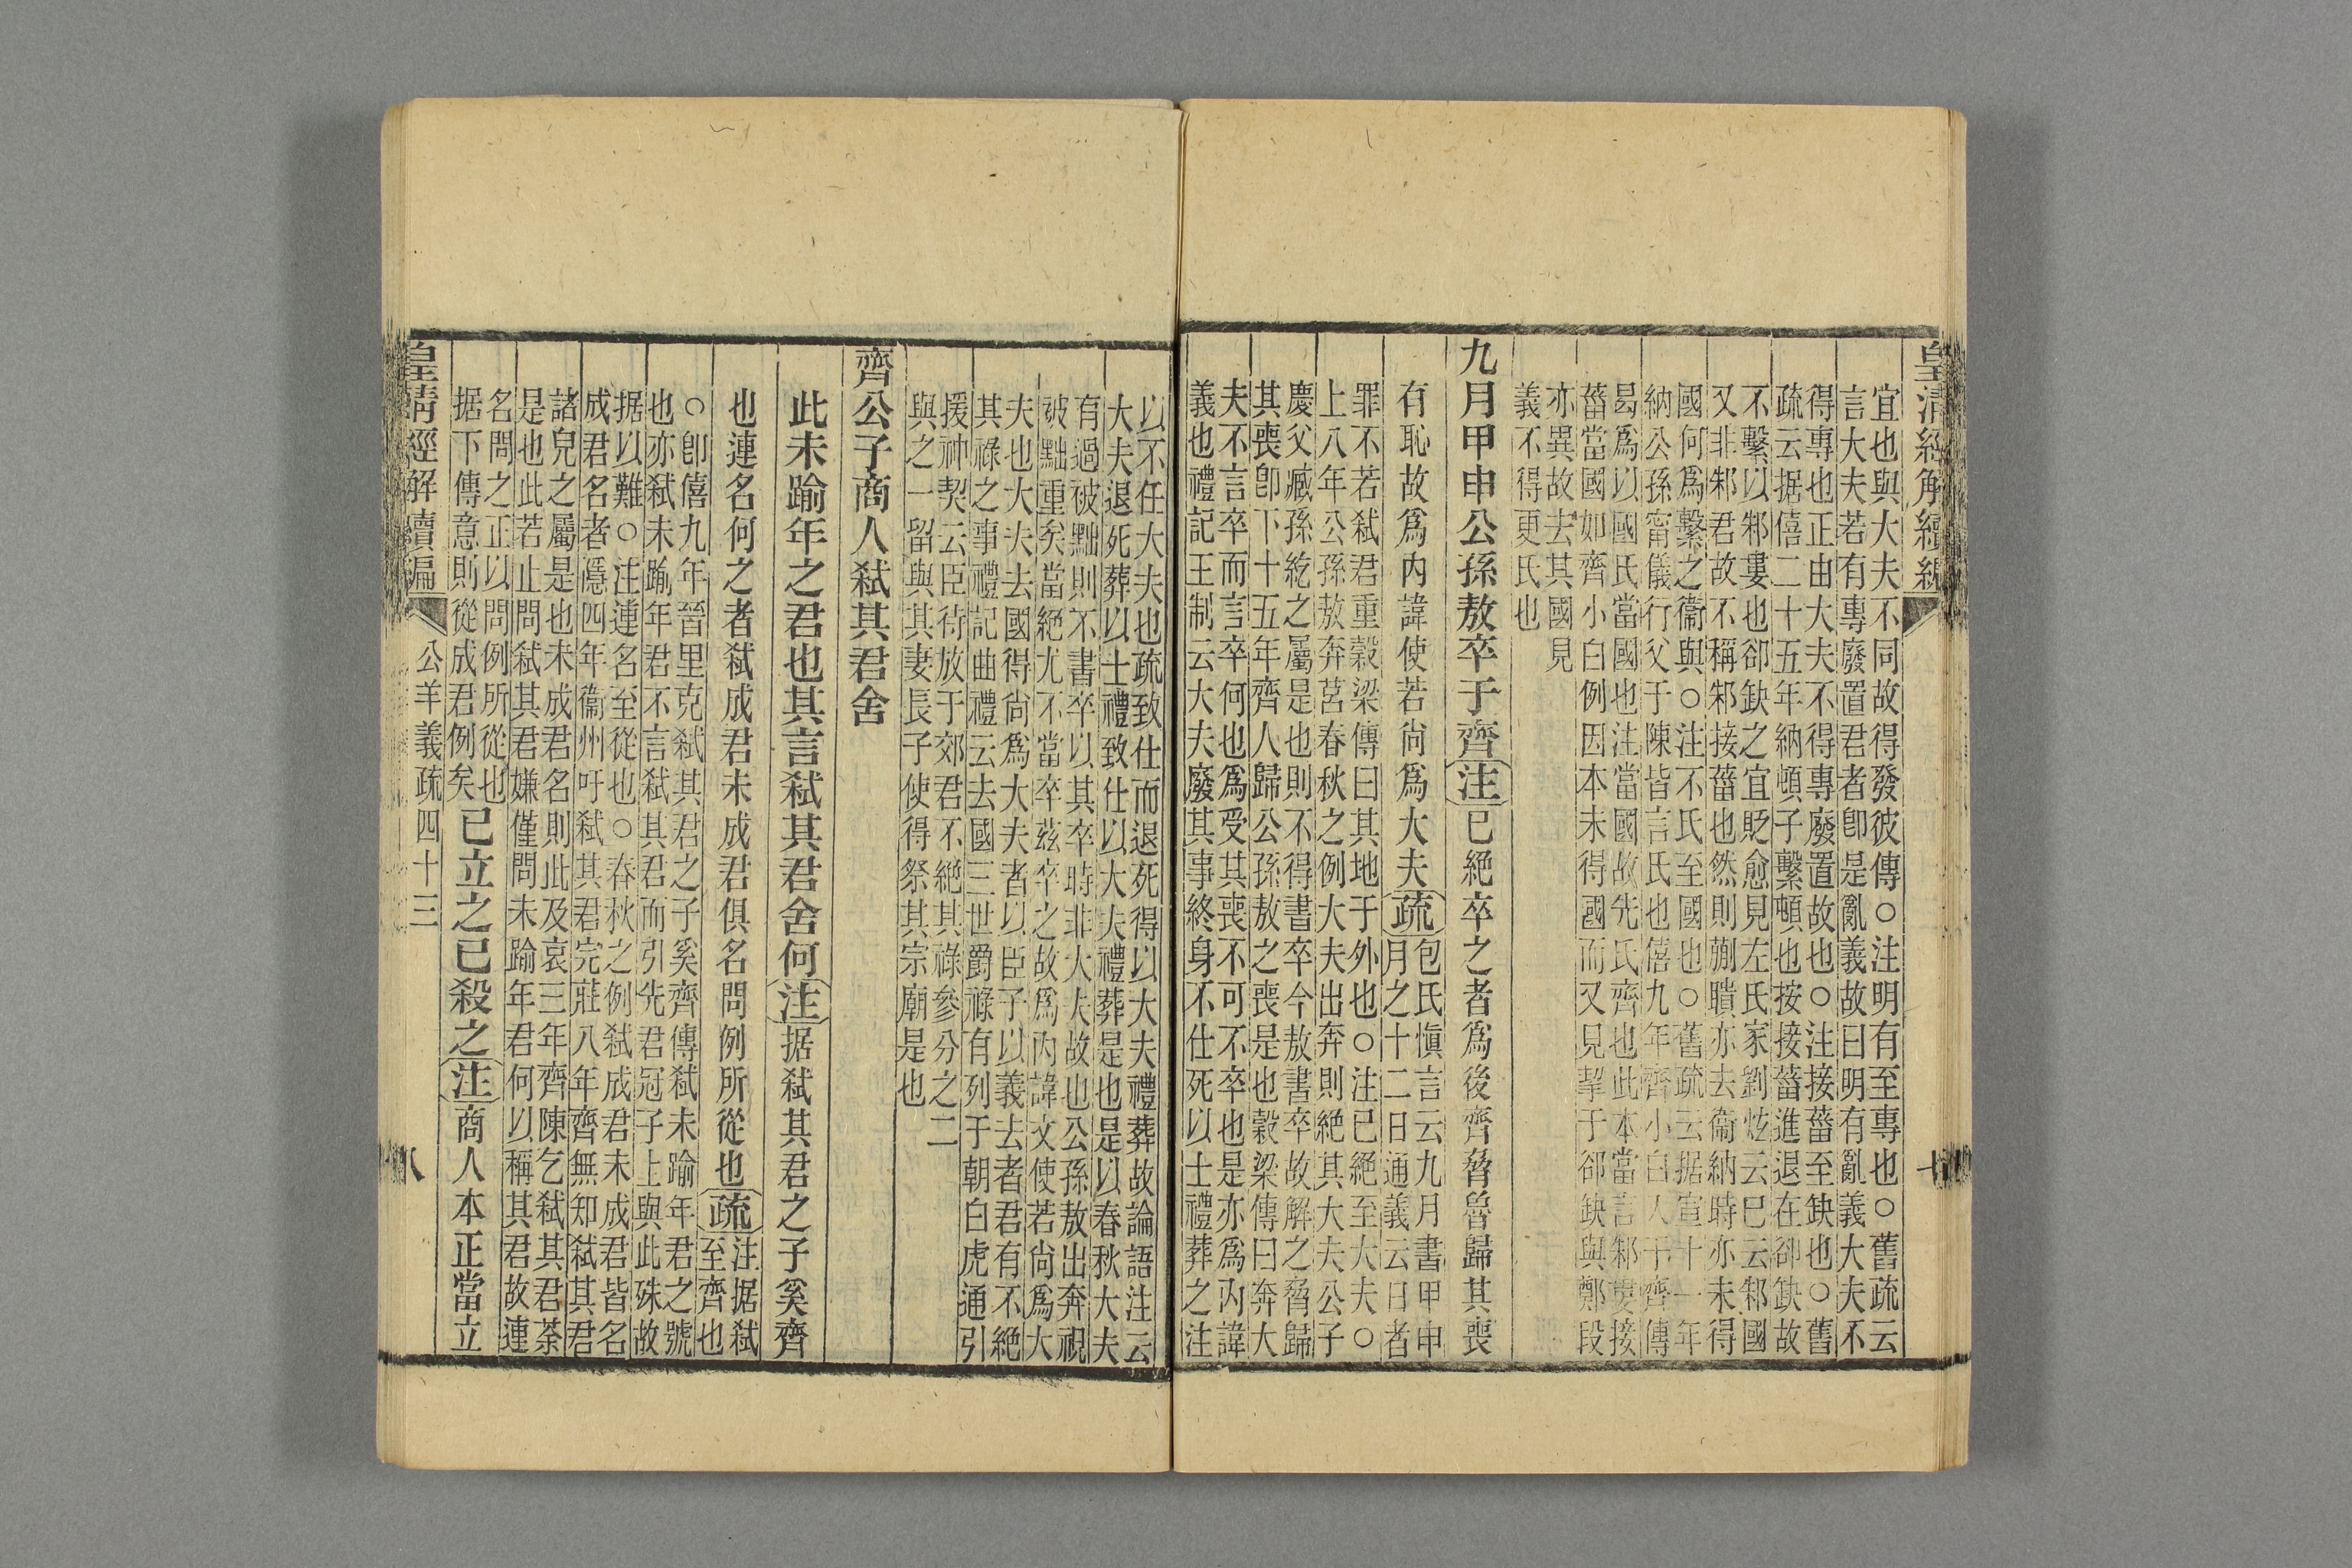 皇清經解續編
宜也與大夫不同故得發彼傳○注明有至專也○舊疏云
言大夫若有專廢置君者卽是亂義故曰明有亂義大夫不
得專也正由大夫不得專廢置故也○注接菑至缺也○舊
疏云据僖二十五年納頓子繫頓也按接菑進退在卻缺故
不繫以邾婁也卻缺之宜貶愈見左氏家劉炫云巳云邾國
又非邾君故不稱邾接菑也然則蒯聵亦去衞納時亦未得
國何爲繫之衞與○注不氏至國也○舊疏云据宣十一年
納公孫甯儀行父于陳皆言氏也僖九年齊小白入于齊傳
曷爲以國氏當國也注當國故先氏齊也此本當言邾婁接
菑當國如齊小白例因本未得國而又見挈于郤缺與鄭段
亦異故去其國見
義不得更氏也
九月甲申公孫敖卒于齊注已絕卒之者爲後齊脅魯歸其喪
有恥故爲內諱使若尚爲大夫疏
包氏愼言云九月書甲申
月之十二日通義云日者
罪不若弑君重穀梁傳曰其地于外也○注已絕至大夫○
上八年公孫敖奔莒春秋之例大夫出奔則絕其大夫公子
慶父臧孫紇之屬是也則不得書卒今敖書卒故解之脅歸
其喪卽下十五年齊人歸公孫敖之喪是也穀梁傳曰奔大
夫不言卒而言卒何也爲受其喪不可不卒也是亦爲內諱
義也禮記王制云大夫廢其事終身不仕死以士禮葬之注
以不任大夫也疏致仕而退死得以大夫禮葬故論語注云
大夫退死葬以士禮致仕以大夫禮葬是也是以春秋大夫
有過被黜則不書卒以其卒時非大夫故也公孫敖出奔視
被黜重矣當絕尤不當卒茲卒之故爲內諱文使若尚爲大
夫也大夫去國得尚爲大夫者以臣子以義去者君有不絕
其祿之事禮記曲禮云去國三世爵祿有列于朝白虎通引
援神契云臣待放于郊君不絕其祿參分之二
與之一留與其妻長子使得祭其宗廟是也
齊公子商人弑其君舍
此未踰年之君也其言弑其君舍何注据弑其君之子奚齊
也連名何之者弑成君未成君俱名問例所從也疏
注据弑
至齊也
○卽僖九年晉里克弑其君之子奚齊傳弑未踰年君之號
也亦弑未踰年君不言弑其君而引先君冠子上與此殊故
据以難○注連名至從也○春秋之例弑成君未成君皆名
成君名者隱四年衞州吁弑其君完莊八年齊無知弑其君
諸兒之屬是也未成君名則此及哀三年齊陳乞弑其君荼
是也此若止問弑其君嫌僅問未踰年君何以稱其君故連
名問之正以問例所從也
据下傳意則從成君例矣
已立之已殺之注商人本正當立
皇清經解續編
公羊義疏四十三
八